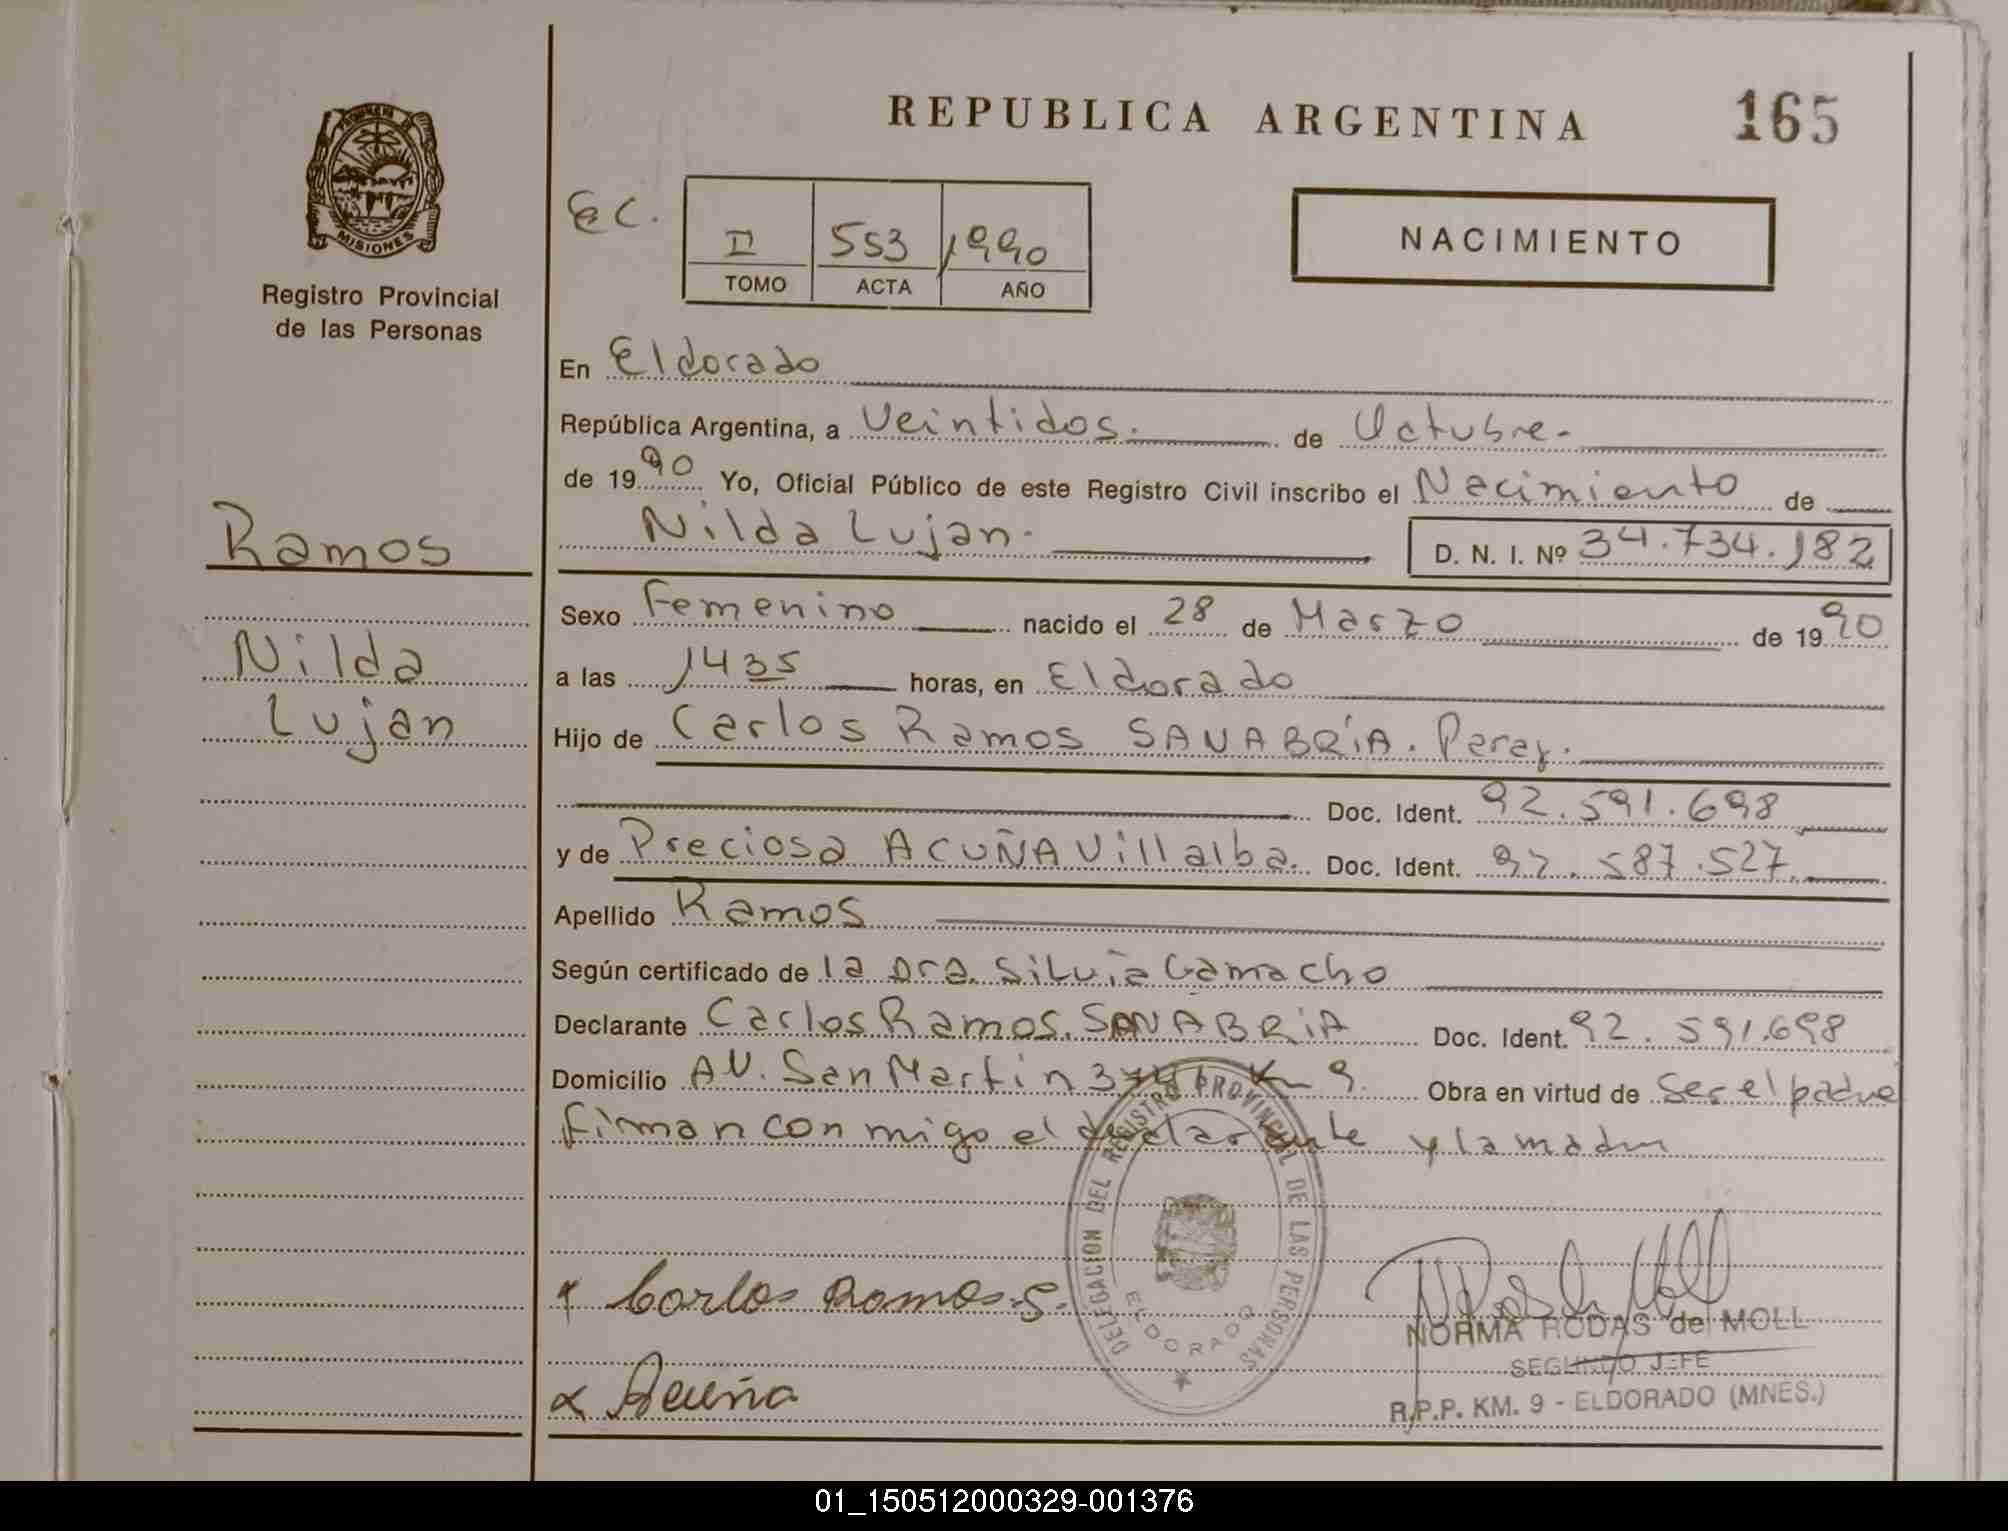 REPUBLICA ARGENTINA
165
PROVINCIA DE
MISIONES
Registro Provincial
de las Personas
EC.
II 553 1990
TOMO ACTA AÑO
NACIMIENTO
En Eldorado
República Argentina, a Veintidos. de Octubre.
de 1990 Yo, Oficial Público de este Registro Civil inscribo el Nacimiento de
Nilda Lujan. D. N. I. Nº 34.734.182
Ramos
Nilda
Lujan
Sexo Femenino nacido el 28 de Marzo de 1990
a las 1435 horas, en Eldorado
Hijo de Carlos Ramos SANABRIA. Paray.
Doc. Ident. 92.591.698
y de Preciosa ACUÑA Villalba. Doc. Ident. 92.587.527
Apellido Ramos
Según certificado de la Dra. Silvia Camacho
Declarante Carlos Ramos. SANABRIA Doc. Ident. 92.591.698
Domicilio AV. San Martin Km 9. Obra en virtud de ser el padre
firman con migo el declarante y la madre
DELEGACION DEL REGISTRO PROVINCIAL DE LAS PERSONAS
ELDORADO
Carlos Ramos. S.
Acuña
NORMA RODAS de MOLL
SEGUNDO JEFE
R.P.P. KM. 9 - ELDORADO (MNES.)
01_150512000329-001376